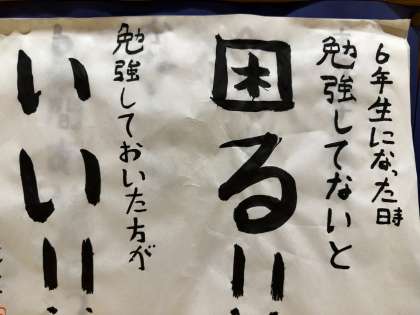 6年生になった時
勉強してないと
困る!!
勉強しておいた方が
いい!!